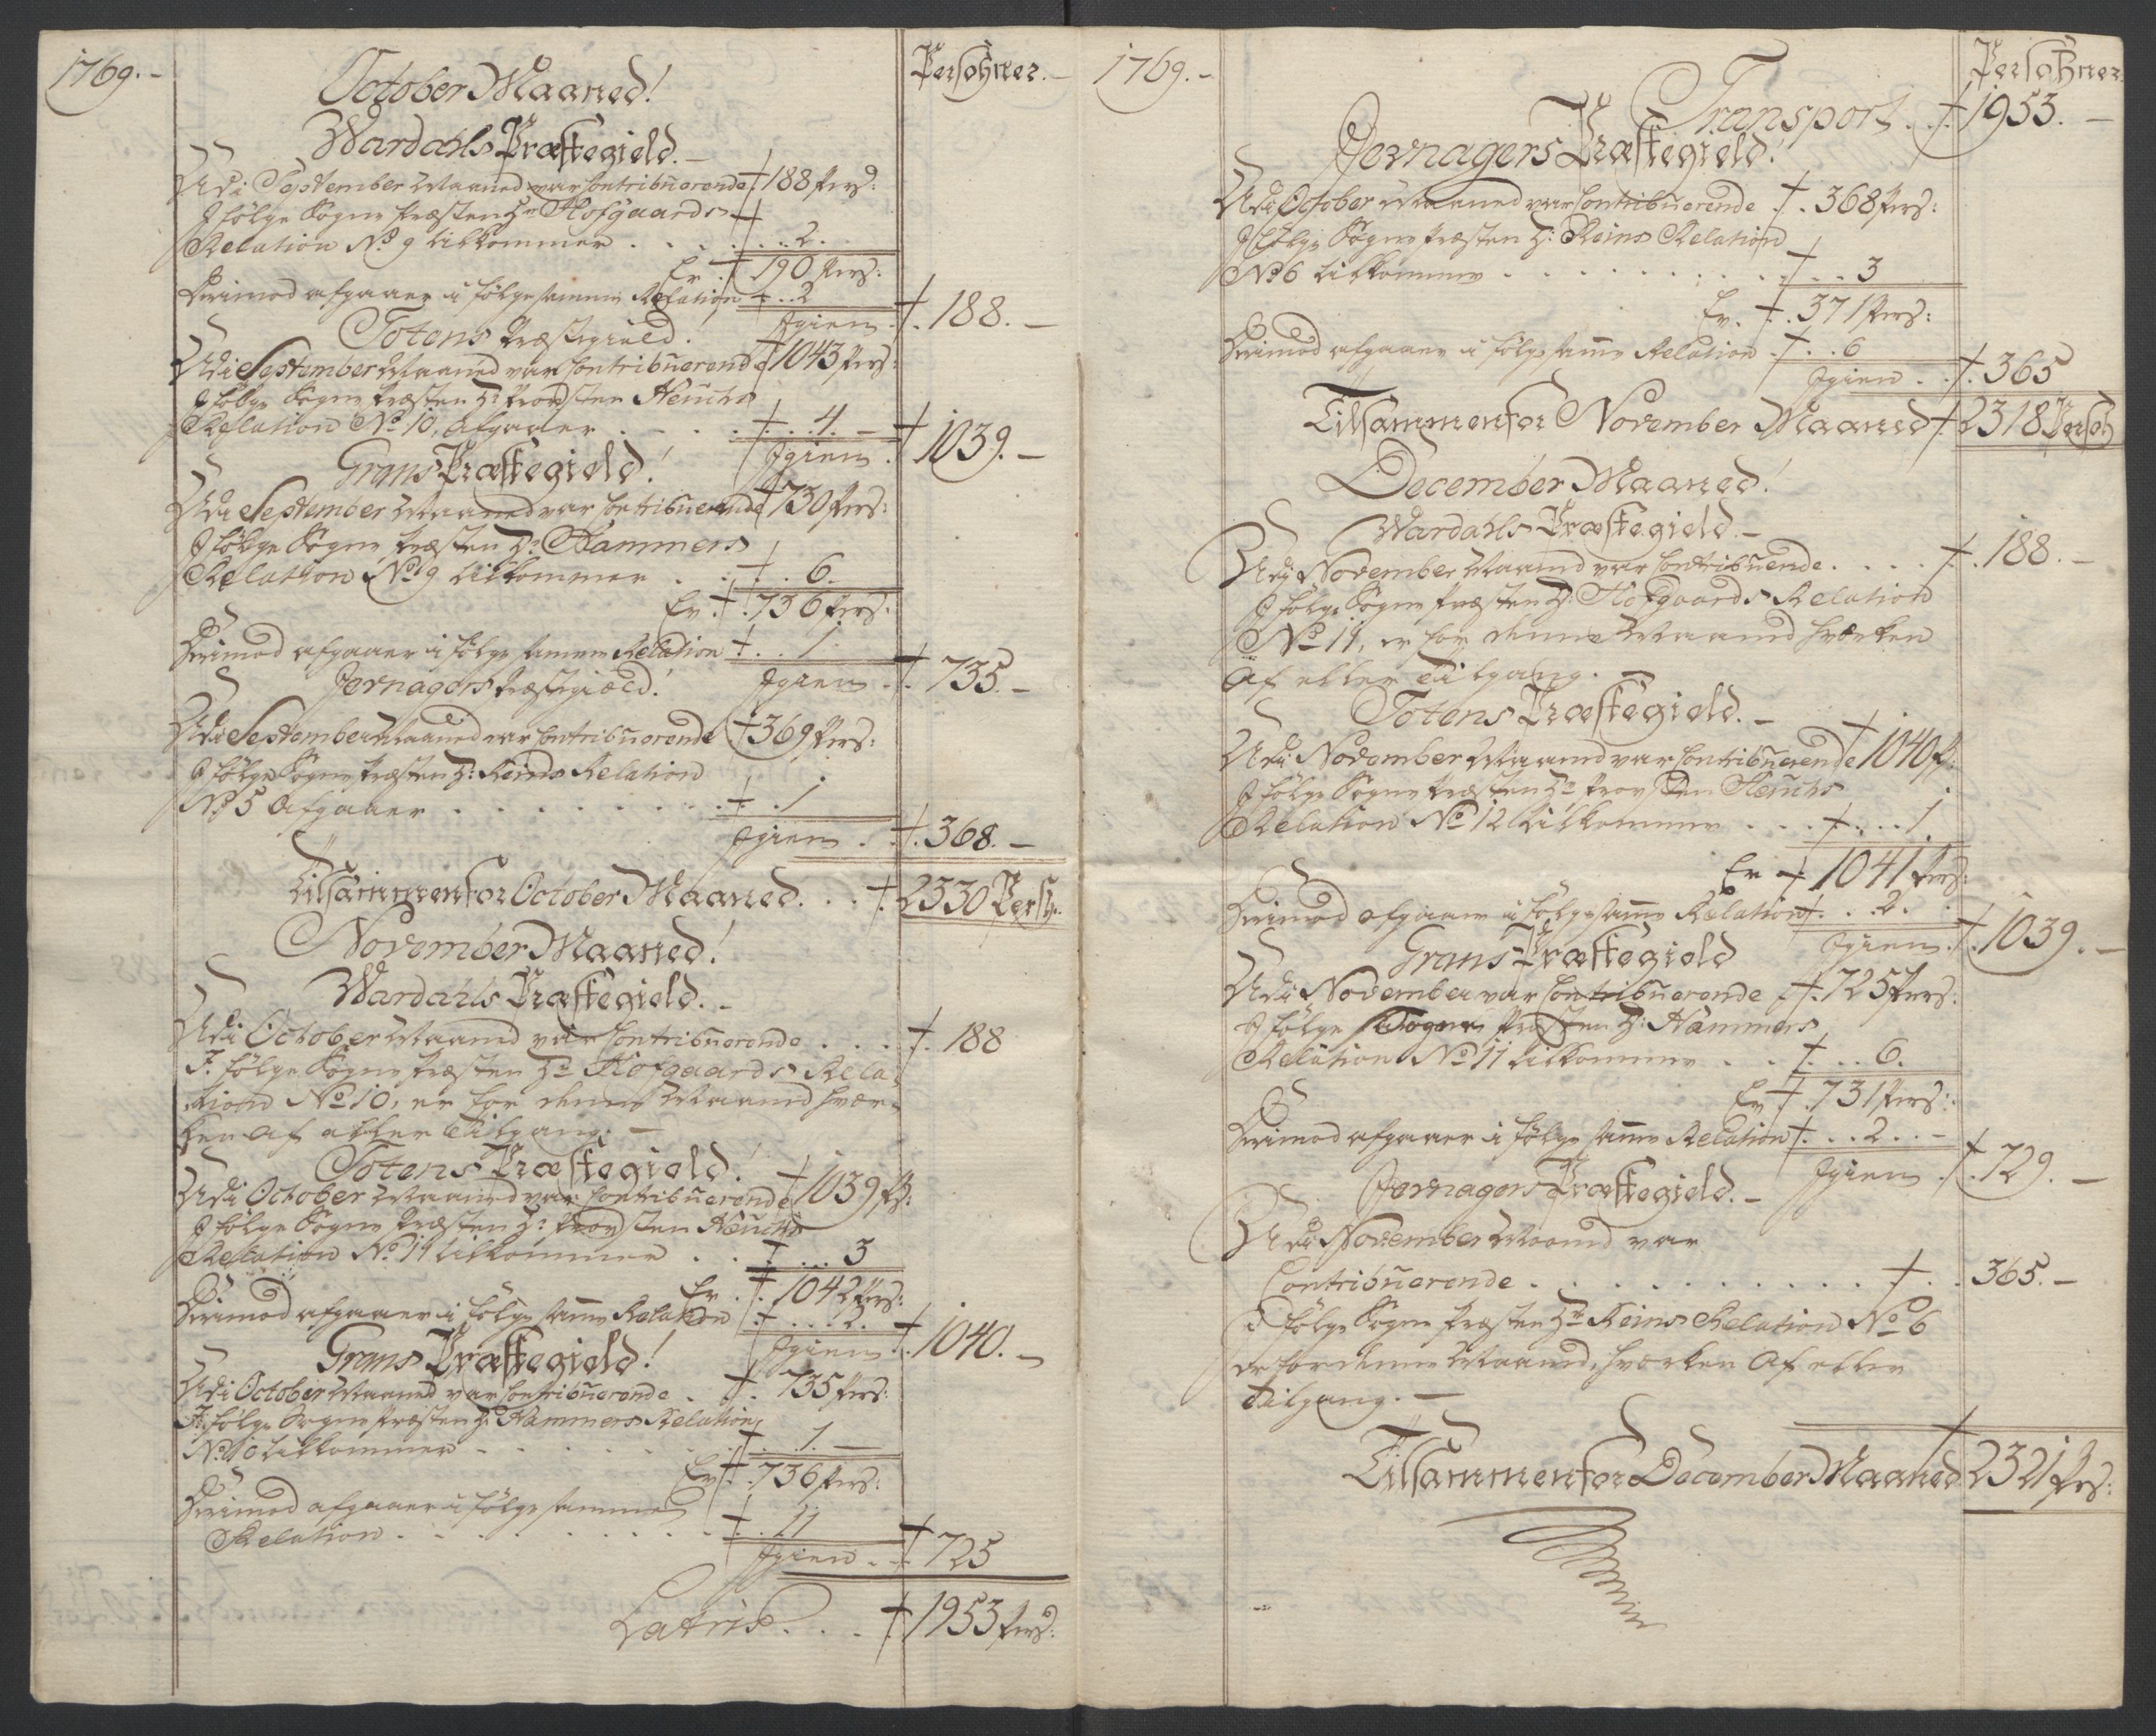 1769.-
Persohner.-
October Maaned!
Wardahls Præstegield.-
Udi September Maaned var Contribuerende 188 Pers:
I følge Sogne Præsten Hr Hofgaards
Relation No 9 tilkommer . . . . 2.
Er 190 Pers:
Derimod afgaaer i følge samme Relation . . 2
Igien . 188.-
Totens Præstegield!
Udi September Maaned var Contribuerende 1043 Pers:
I følge Sogne Præsten Hr Provsten Heuchs
Relation No 10, afgaaer . . . . 4.-
Igien . 1039.-
Grans Præstegield!
Udi September Maaned var Contribuerende 730 Pers:
I følge Sogne Præsten Hr Hammers
Relation No 9 tilkommer . . . 6.
Er . 736 Pers:
Derimod afgaaer i følge samme Relation . . 1
Igien . 735.-
Jevnagers Præstegield!
Udi September Maaned var Contribuerende 369 Pers:
I følge Sogne Præsten Hr: Reins Relation
No 5 Afgaaer . . . . . . . . 1
Igien . . 368.-
Tilsammen for October Maaned. . . 2330 Persh:
November Maaned!
Wardahls Præstegield.-
Udi October Maaned var Contribuerende . . . 188
I følge Sogne Præsten Hr Hofgaards Rela-
tion No 10, er for denne Maaned hver-
ken Af eller Tilgang.-
Totens Præstegield!
Udi October Maaned var Contribuerende 1039 Ps:
I følge Sogne Præsten Hr: Provsten Heuchs
Relation No 11 tilkommer . . . . . 3
Er . 1042 Pers:
Derimod afgaaer i følge samme Relation . . . 2.
Igien . 1040.-
Grans Præstegield!
Udi October Maaned var Contribuerende . . 735 Pers:
I følge Sogne Præsten Hr: Hammers Relation
No 10 tilkommer . . . . . . 1.-
Er . 736 Pers:
Derimod afgaaer i følge samme
Relation . . . . . . . . . . 11
Igien . . 725
Latris. . . . 1953 Pers:
1769.-
Persohner
Transport . . 1953.-
Jevnagers Præstegield!
Udi October Maaned var Contribuerende . 368 Pers:
I følge Sogne Præsten Hr: Reins Relation
No 6 tilkommer . . . . . . . . . . 3
Er . . 371 Pers:
Derimod afgaaer i følge samme Relation . . . 6
Igien . . 365
Tilsammen for November Maaned 2318 Persoh
December Maaned!
Wardahls Præstegield.-
Udi November Maaned var Contribuende. . . . . 188.-
I følge Sogne Præsten Hr: Hofgaards Relation
No 11, er for denne Maaned hverken
Af eller Tilgang.-
Totens Præstegield.-
Udi November Maaned var Contribuerende 1040 P:
I følge Sogne Præsten Hr Provsten Heuchs
Relation No 12 tilkommer . . . . . . 1.
Er 1041 Pers:
Derimod afgaaer i følge samme Relation . . . 2.
Igien . 1039.-
Grans Præstegield
Udi November var Contribuerende . 725 Pers:
I følge Sogne Præsten Hr: Hammers
Relation No 11 tilkommer . . . . . 6.
Er . 731 Pers:
Derimod afgaaer i følge samme Relation . . . 2..-
Igien . 729.-
Jevnagers Præstegield.-
Udi November Maaned var
Contribuerende . . . . . . . . . . . 365.-
I følge Sogne Præsten Hr Reins Relation No 6
er for denne Maaned, hverken Af eller
Tilgang.-
Tilsammen for December Maaned 2321 Pers: